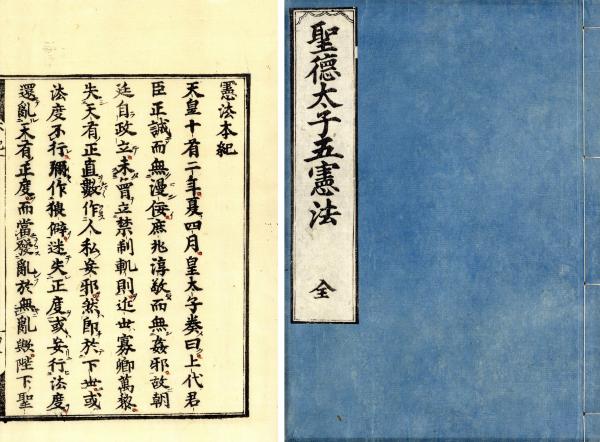 聖德太子五憲法
全
憲法本紀
天皇十有二年夏四月皇太子奏曰上代君
臣正誠而無漫佞庶兆淳敬而無姦邪故朝
廷自政立未曾立禁制軌則近世寡卿萬黎
失天有正直數作人私妄邪然即於下世或
法度不行作僻迷失正度或妄行法度
還亂天有正度而當發亂於無亂歟陛下聖